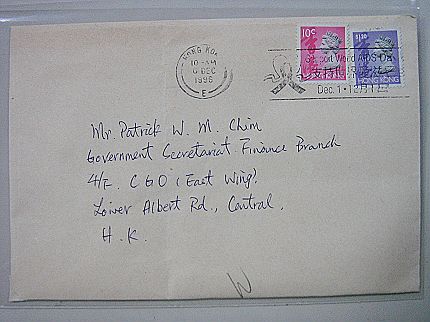 HONG KONG
10 - AM
DEC
1996
E
10c
HONG KONG
$1.20
HONG KONG
Support World AIDS Day
Dec. 1 · 12月1日
Mr. Patrick W. M. Chim
Government Secretariat Finance Branch
4/F. CGO (East Wing),
Lower Albert Rd., Central,
H. K.